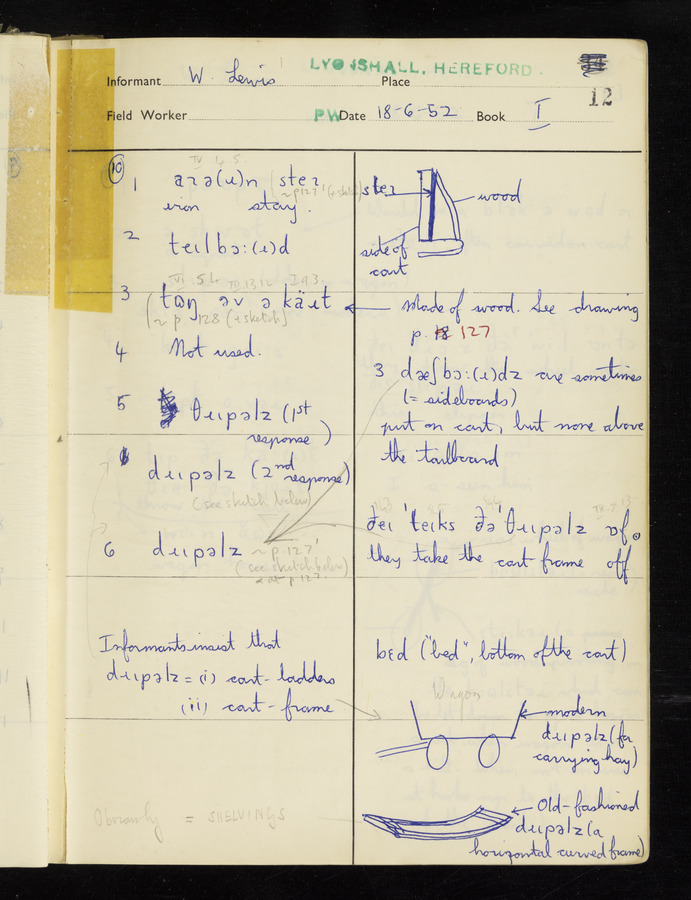 LYONSHALL, HEREFORD.
Informant W. Lewis Place
12
Field Worker PW Date 18-6-52 Book I
10
IV 4.5.
1 aɹə(ɹ)n steɪ
iron stay.
2 teɪlbɔ:(ɹ)d
3 tɒŋ əv ə käɹt
~ p. 128 (+ sketch)
4 Not used.
5 θɹɪpəlz (1st
response)
dɹɪpəlz (2nd
response)
(see sketch below)
6 dɹɪpəlz ~ p. 127'
(see sketch below)
& at p 127.
Informants insist that
dɹɪpəlz = (i) cart-ladders
(ii) cart-frame
= SHELVINGS
steɪ
wood
side of
cart
Made of wood. See drawing
p. 127
3 dæʃbɔ:(ɹ)dz are sometimes
(= sideboards)
put on cart, but none above
the tailboard
ðeɪ 'teɪks ðə 'θɹɪpəlz ɒf.
they take the cart frame off
bɛd ("bed", bottom of the cart)
Wagon
modern
dɹɪpəlz (for
carrying hay)
Old-fashioned
dɹɪpəlz (a
horizontal curved frame)